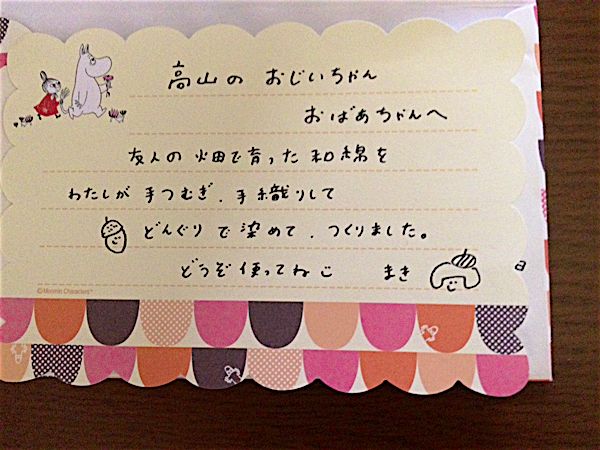 高山の おじいちゃん
おばあちゃんへ
友人の 畑で育った 和綿を
わたしが 手つむぎ、手織りして
どんぐり で 染めて、つくりました。
どうぞ 使ってね まき
©Moomin Characters™